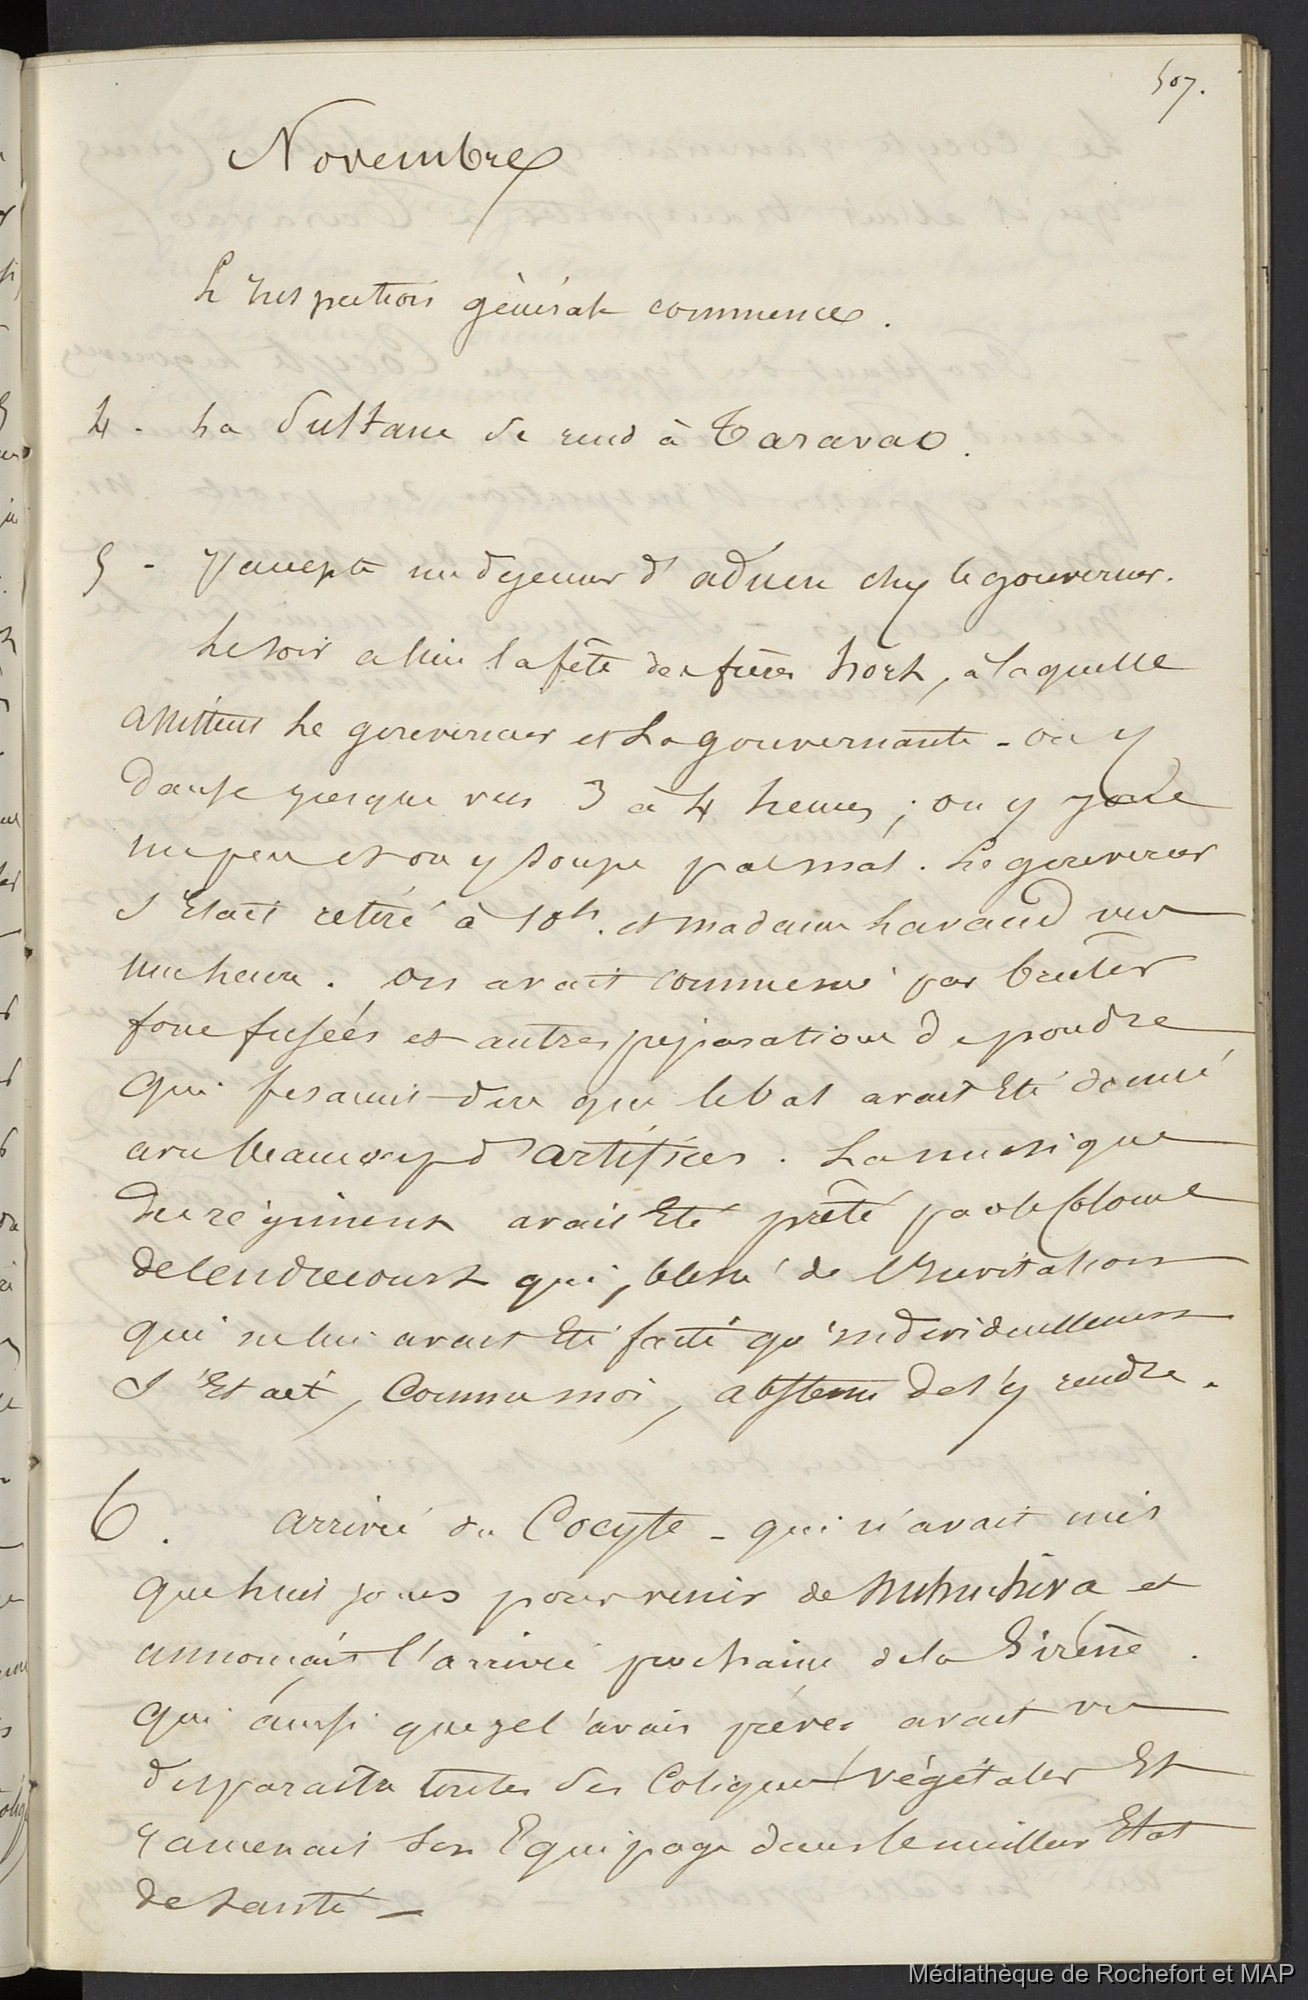 507.
Novembre
L'Inspection générale commence.
4 - La Sultane se rend à Taravao.
5 - J'accepte un dejeuner d'adieu chez le gouverneur.
Le soir a lieu la fête des frères hort, à laquelle
assistent Le gouverneur et La gouvernante - on y
danse jusque vers 3 à 4 heures ; on y joue
un peu et on y soupe pas mal. Le gouverneur
s'Etait retiré à 10h. et madame Lavaud vers
une heure. On avait commencé par bruler
force fusées et autres préparations de poudre
qui fesaient dire que le bal avait Eté donné
avec beaucoup d'artifices. La musique
du régiment avait Eté prêté par le Colonel
de lendrecourt qui, blessé de l'Invitation
qui ne lui avait Eté faite qu'individuellement
s'Etait, Comme moi, abstenu de s'y rendre.
6. arrivée du Cocyte - qui n'avait mis
que huit jours pour venir de Nuhuhiva et
annonçait l'arrivée prochaine de la Sirène.
qui ainsi que je l'avais prévu avait vu
disparaitre toutes ses Coliques végétales Et
ramenait son Equipage dans le meilleur Etat
de santé -
Médiathèque de Rochefort et MAP